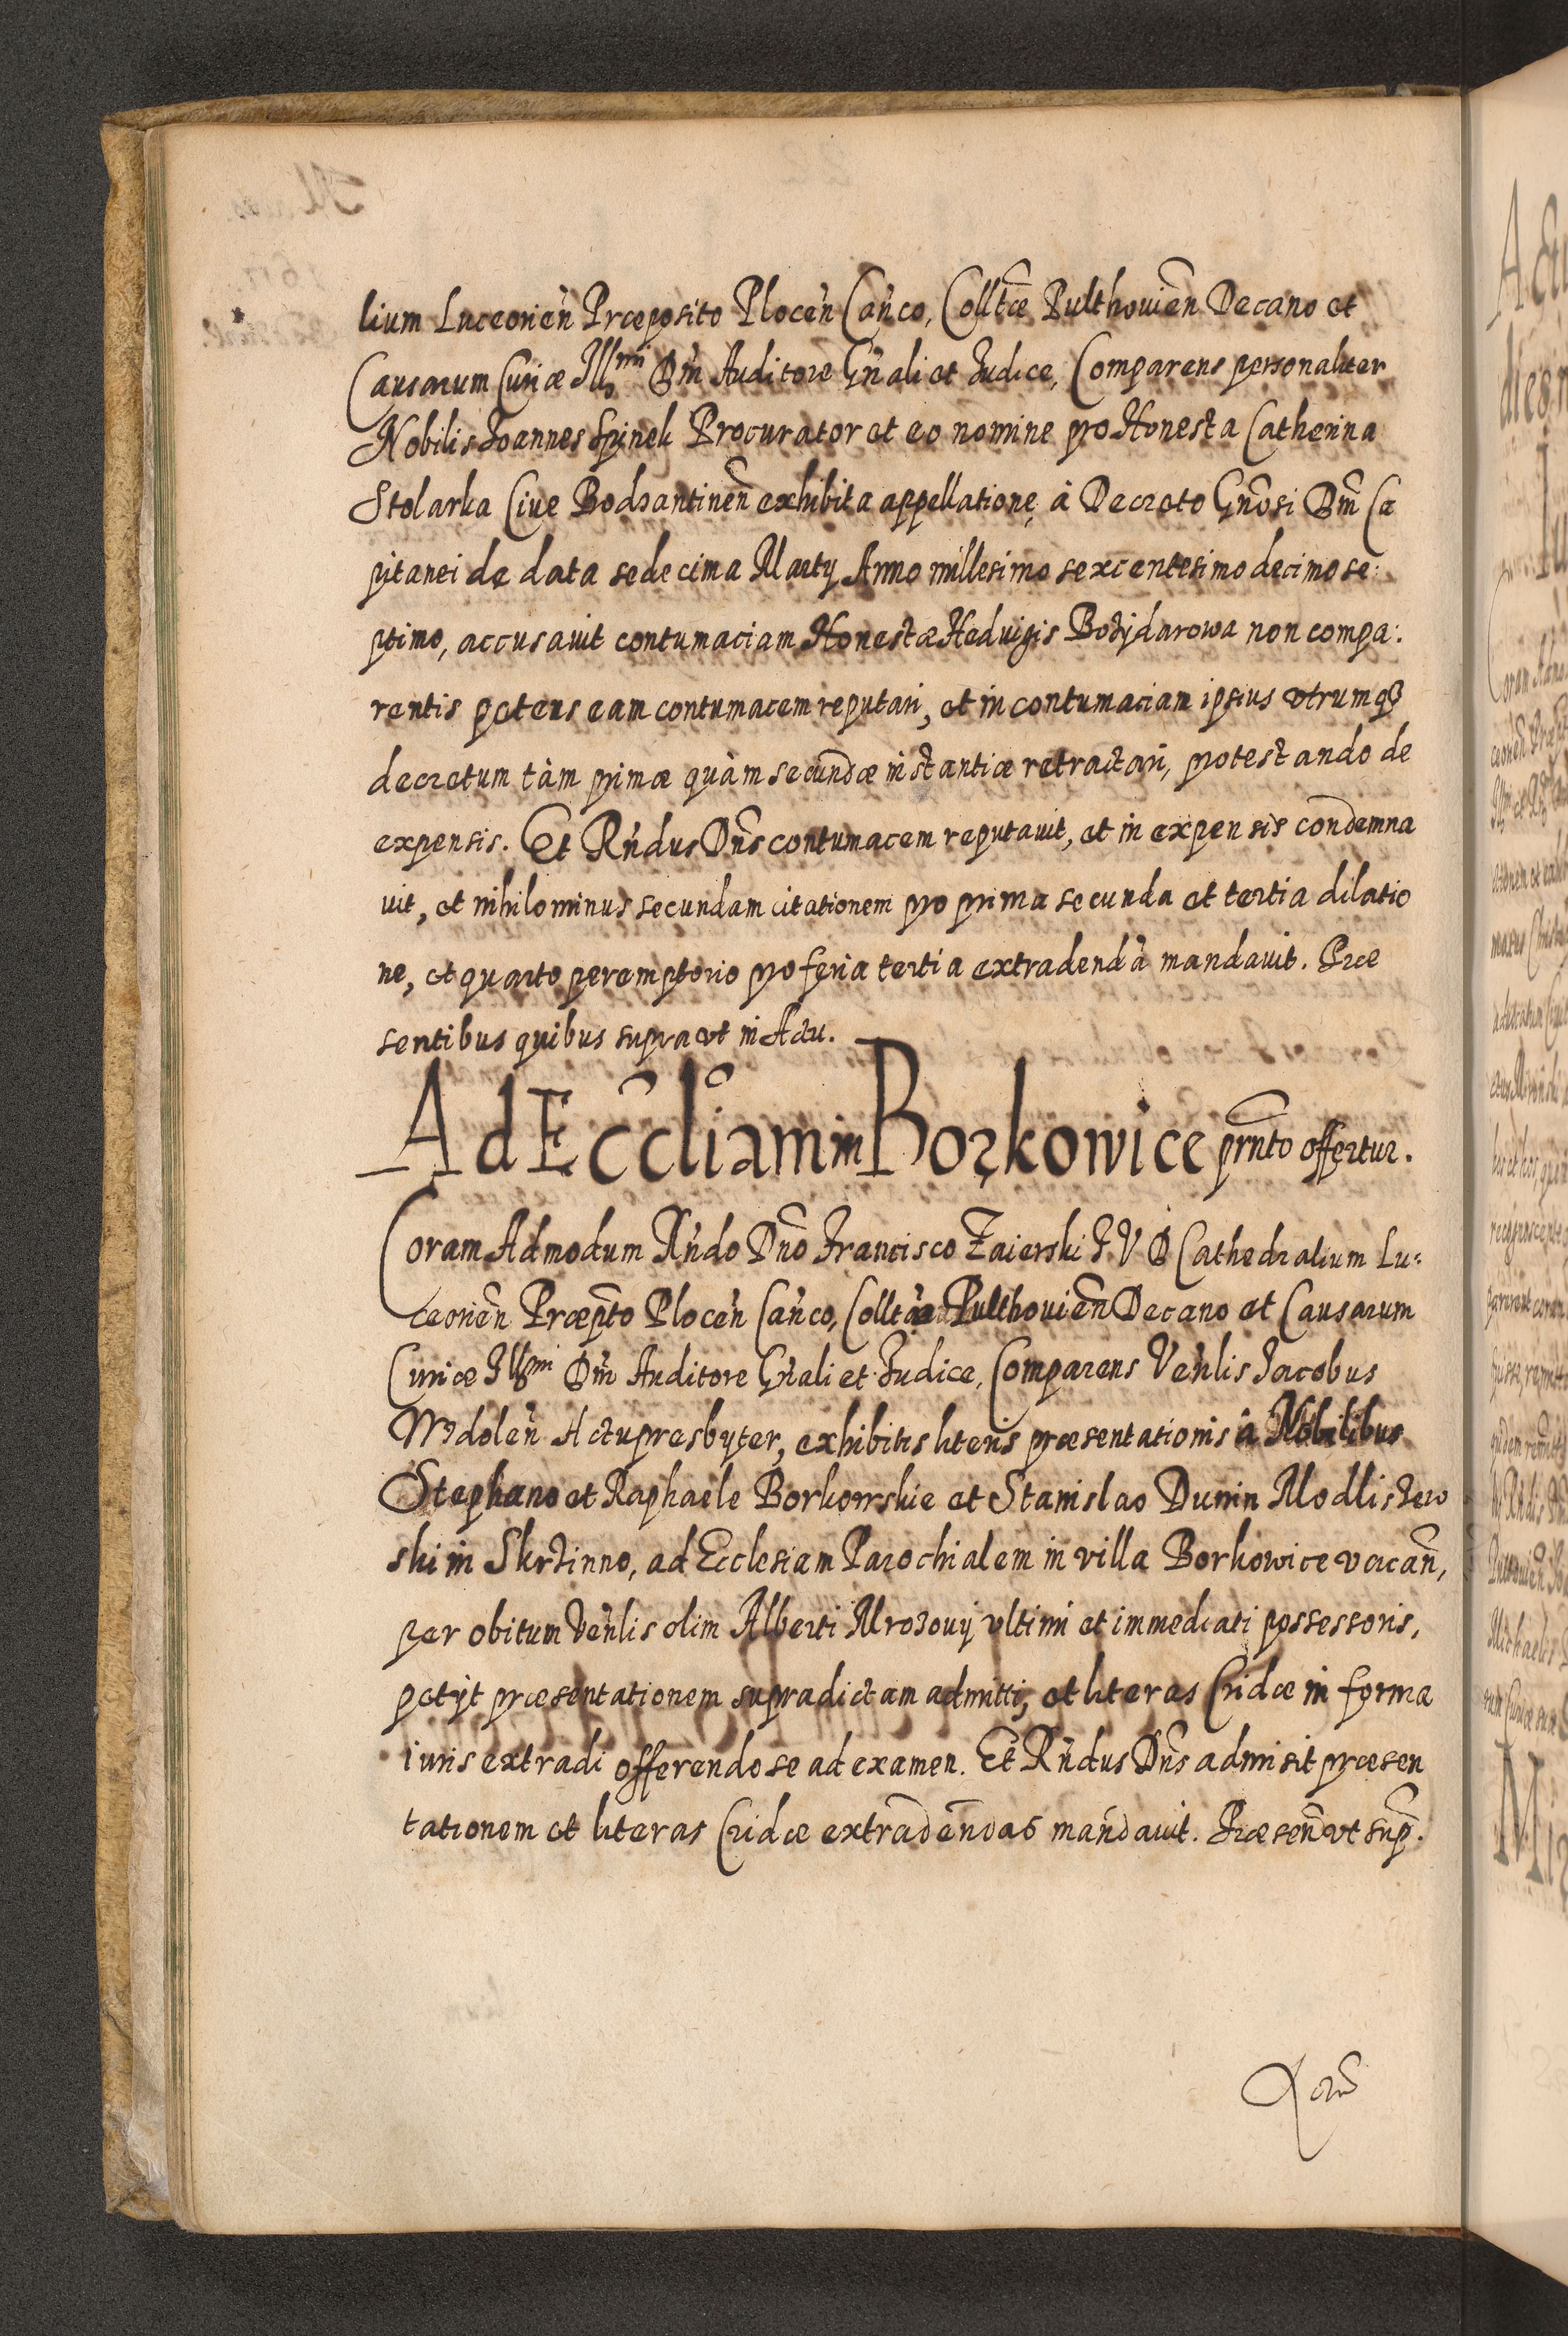 lium Luceorien̄ Præposito Plocen̄ Can̄co, Colltæ̃ Pulthovien̄ Decano et
Causarum Curiæ Illmi Dn̄i Auditore Gn̄ali et Iudice, Comparens personaliter
Nobilis Joannes Spinek Procurator et eo nomine pro Honesta Catherina
Stolarka Cive Bodzantinen̄ exhibita appellatione à Decreto Gn̄osi Dn̄i Ca
pitanei de data sedecima Martÿ Anno millesimo sexcentesimo decimo se:
ptimo, accusavit contumaciam Honestæ Hedvigis Bozÿdarowa non compa:
rentis petens eam contumacem reputari, et in contumaciam ipsius utrumq3
decretum tàm primæ quàm secundæ instantiæ retractari, protestando de
expensis. Et Rn̄dus Dn̄s contumacem reputavit, et in expensis condemna
vit, et nihilominus secundam citationem pro prima secunda et tertia dilatio
ne, et quarto peremptorio pro feria tertia extradendā mandavit. Præ
sentibus quibus supra ut in Actu.
Ad Eccl̄iam in Borkowice prn̄to offertur.
Coram Admodum Rn̄do Dn̄o Francisco Zaierski I. V. D Cathedralium Lu:
ceorien̄ Præpt̄o Plocen̄ Can̄co, Colltæ̃ Pulthovien̄ Decano et Causarum
Curiæ Illmi Dn̄i Auditore Gn̄ali et Iudice, Comparens Ven̄lis Jacobus
Wzdolen̄ Actupresbyter, exhibitis literis præsentationis à Nobilibus
Stephano et Raphaele Borkowskie et Stanislao Dunin Modliszew
ski in Skrzinno, ad Ecclesiam Parochialem in villa Borkowice vacan̄,
per obitum Ven̄lis olim Alberti Mrozovÿ ultimi et immediati possessoris,
petÿt præsentationem supradictam admitti, et literas Cridæ in forma
iuris extradi offerendo se ad examen. Et Rn̄dus Dn̄s admisit præsen
tationem et literas Cridæ extradendas mandavit. Præsen̄ ut sup̄.